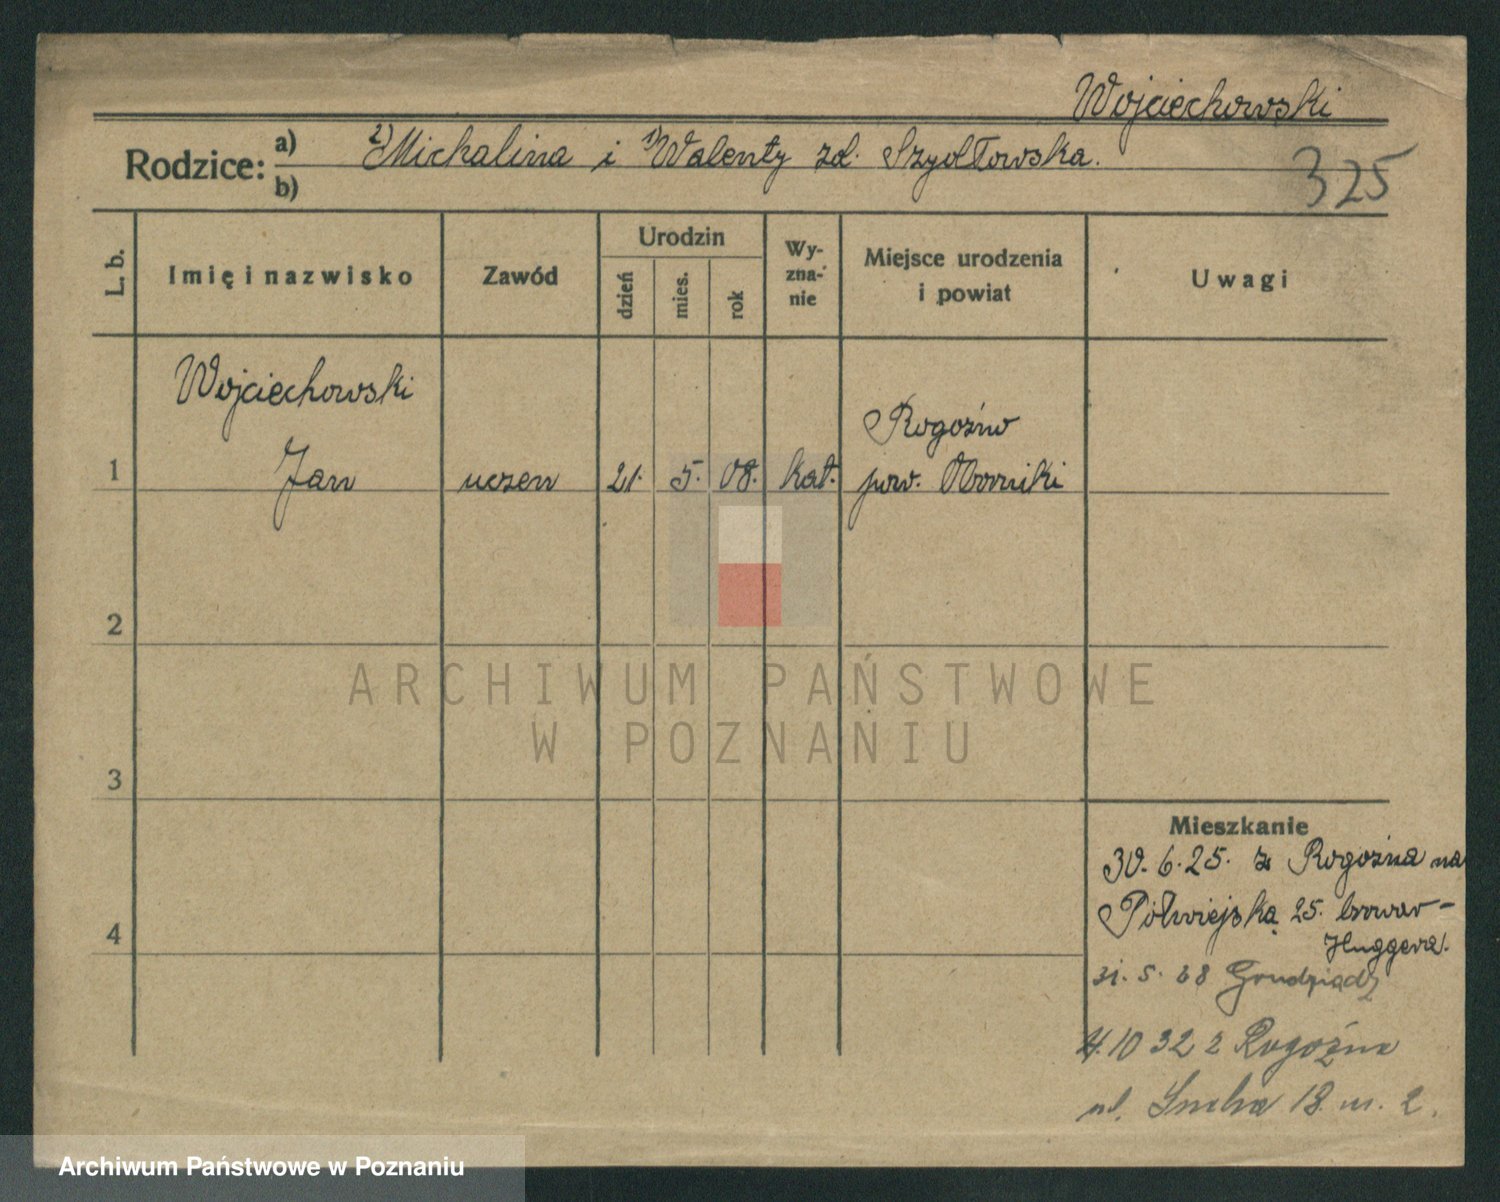 Wojciechowski
Rodzice: a) 2) Michalina i 1) Walenty zd. Szydłowska.
b)
325
L. b.
Imię i nazwisko
Zawód
Urodzin
dzień
mies.
rok
Wy-
zna-
nie
Miejsce urodzenia
i powiat
Uwagi
Wojciechowski
Rogoźno
1 Jan uczen 21. 5. 08. kat. pow.
2
3
4
Mieszkanie
30. 6. 25. z Rogoźna na
Półwiejską 25. browar-
Huggera.
31. 5. 28 Grudziądz
4. 10 32 z Rogoźna
ul. 18. m. 2.
ARCHIWUM PAŃSTWOWE
W POZNANIU
Archiwum Państwowe w Poznaniu